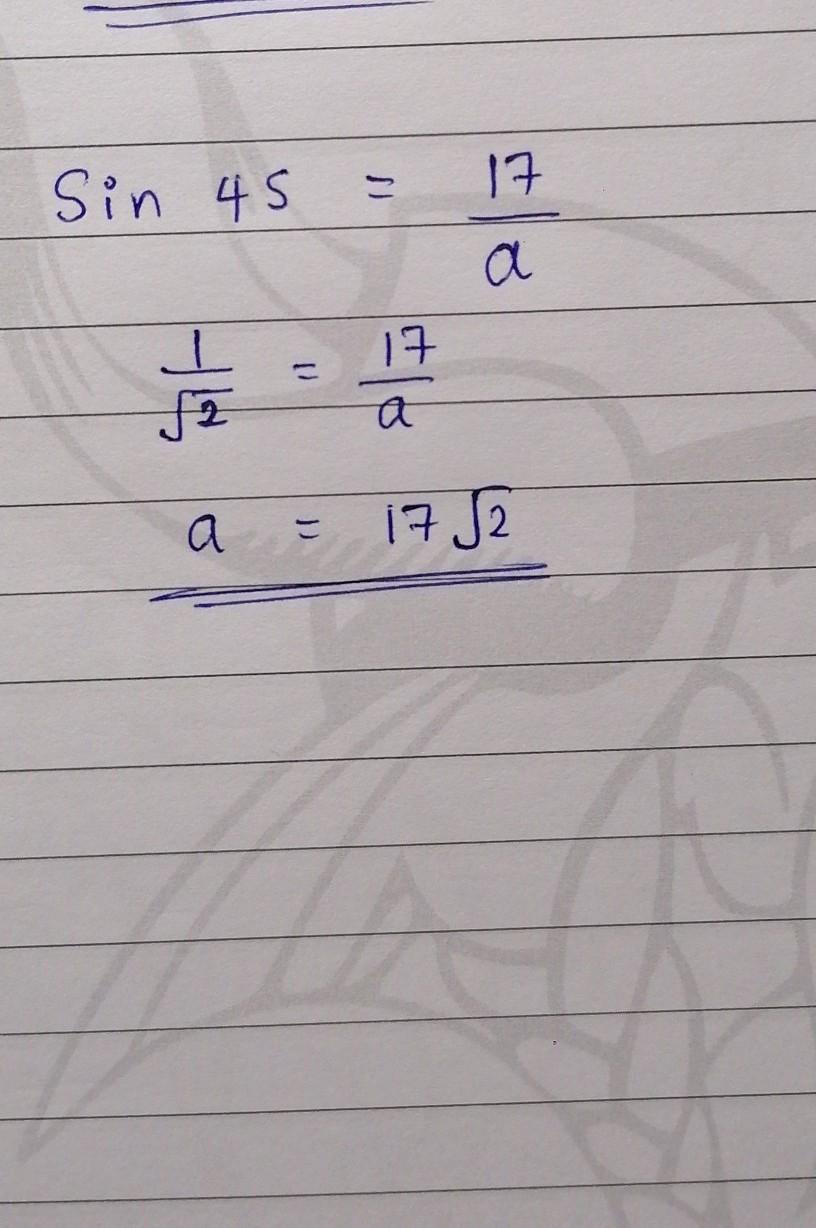 Sin 45 = 17/a
1/√2 = 17/a
a = 17√2